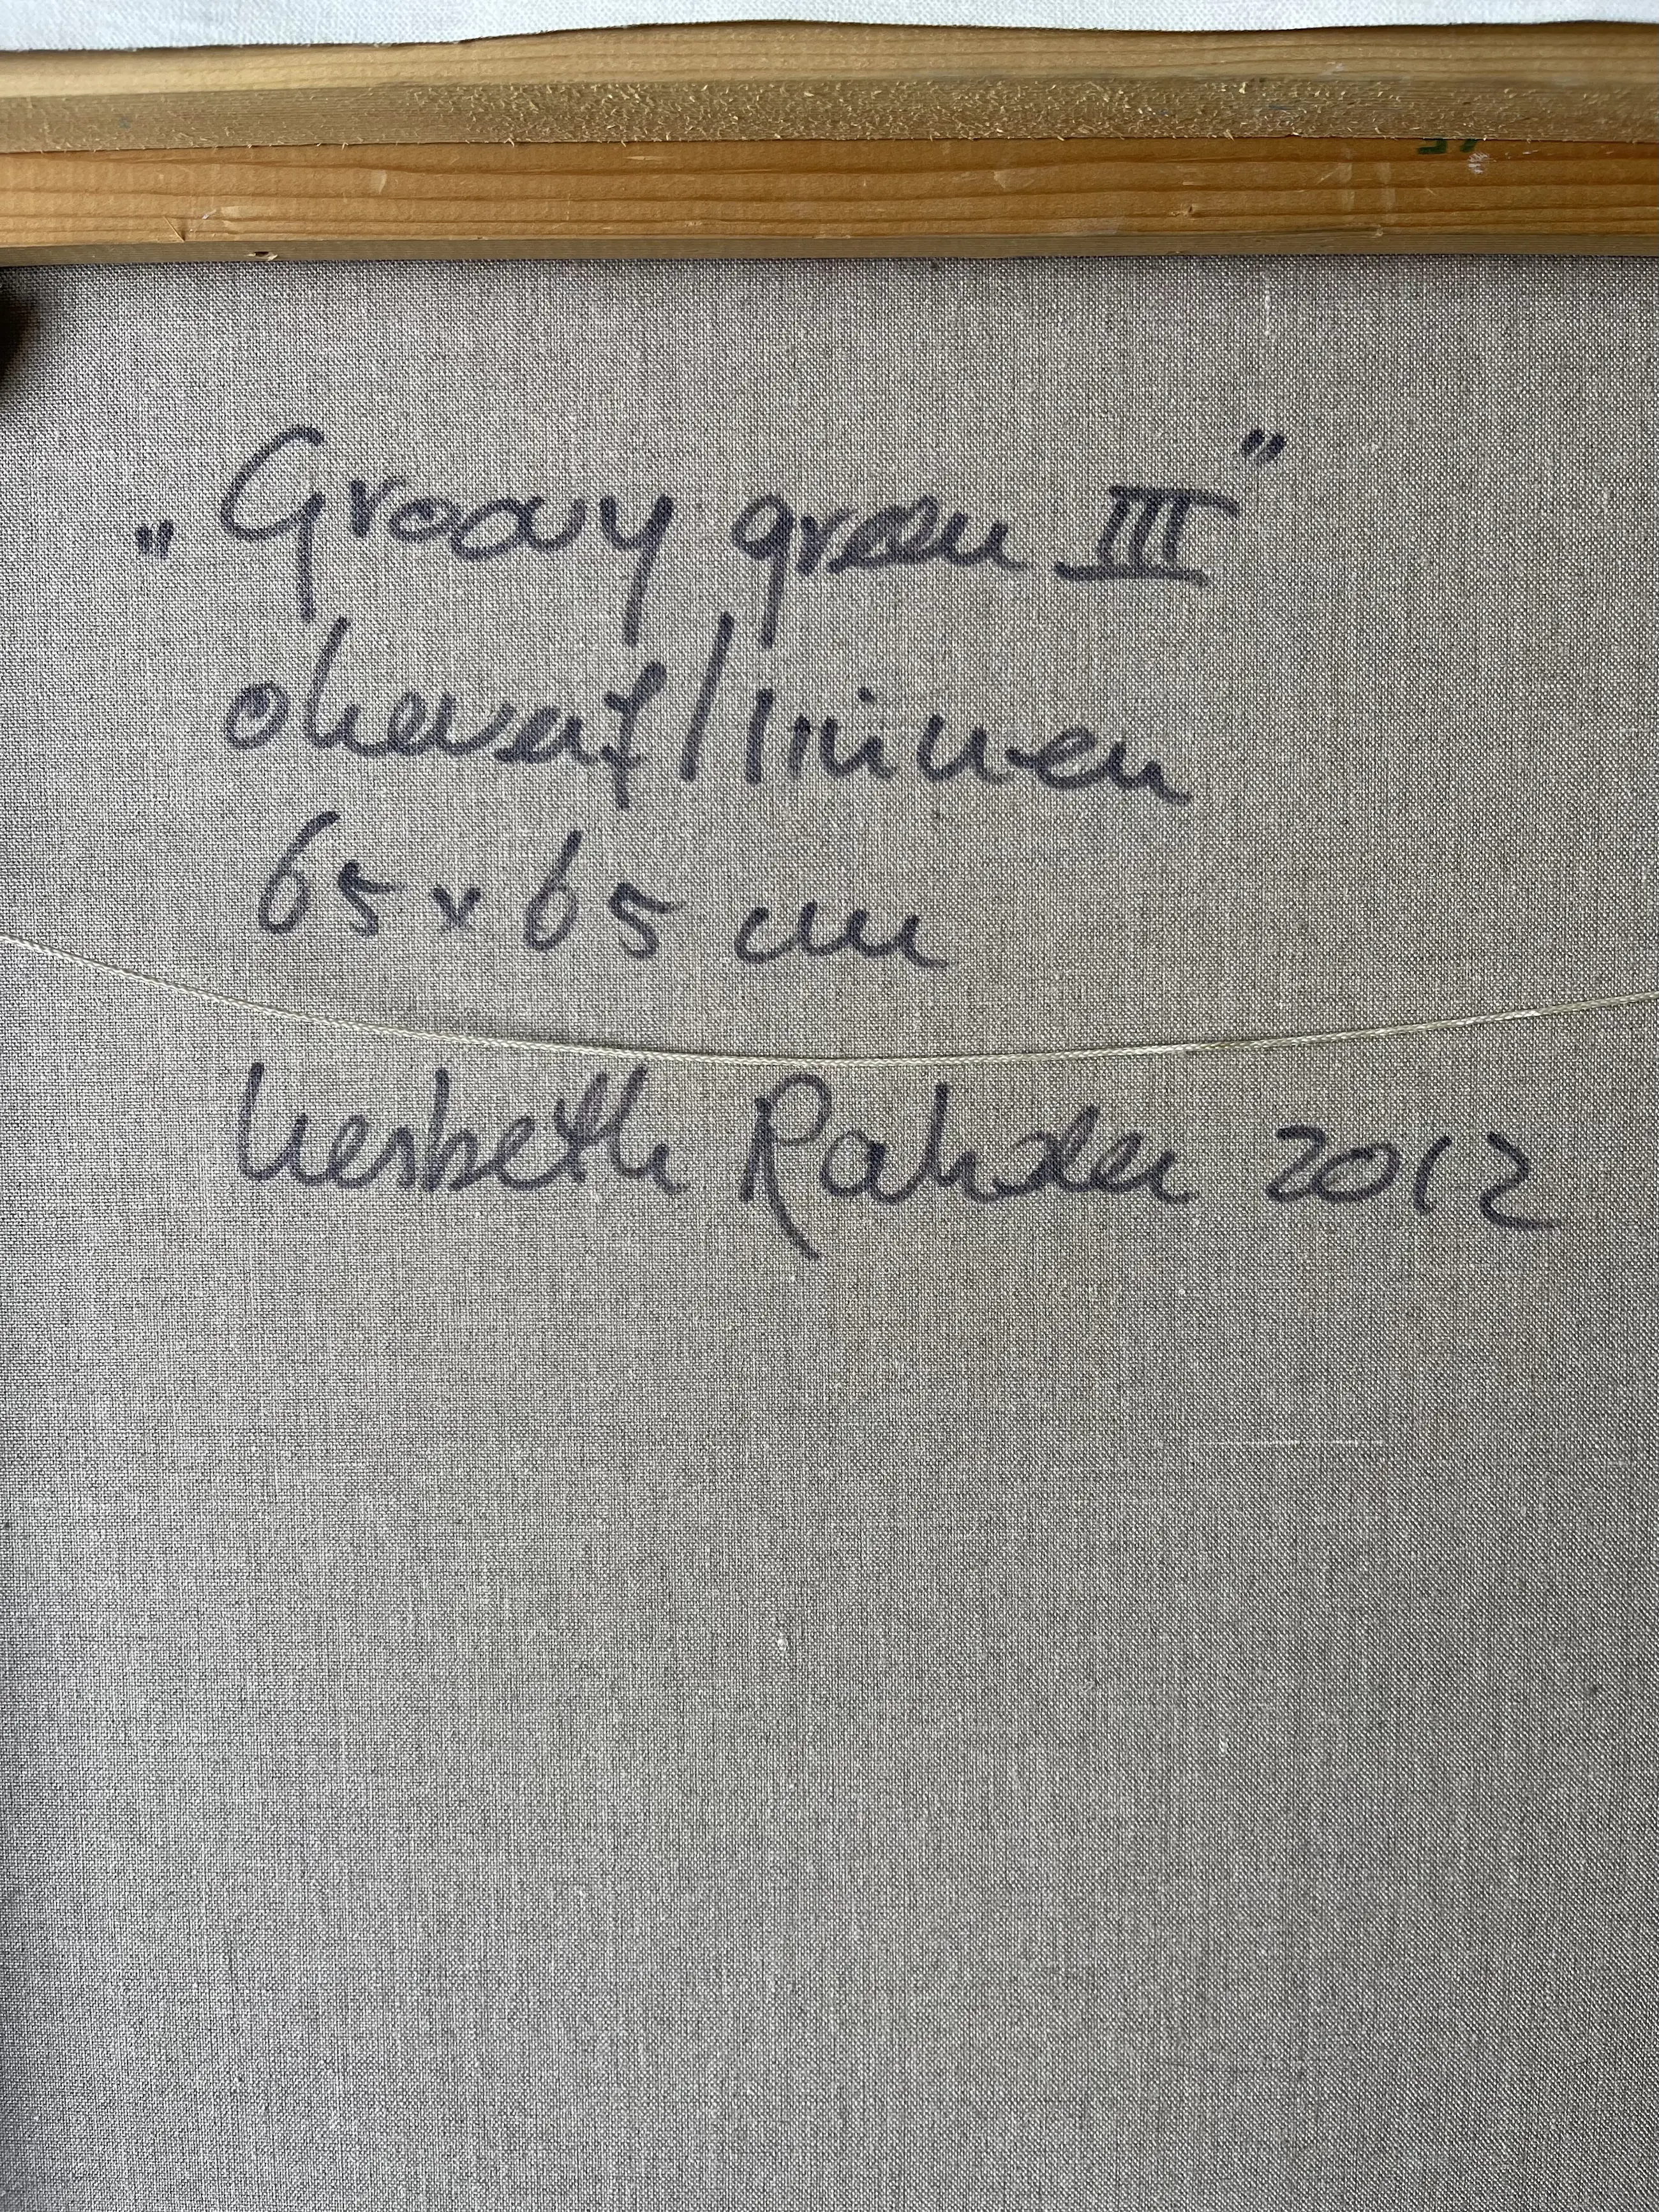 „Groovy green III"
olieverf/linnen
65 x 65 cm
Liesbeth Rahder 2012